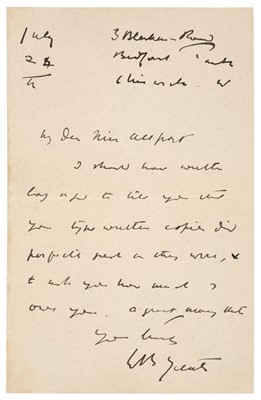 July 3 Blenheim Road
24 Bedford Park
Chiswick W
My dear Miss Allport
I should have written
long ago to tell you that
your type written copies did
perfectly great as they were, &
to ask you how much I
owe you. a great many that
Yours truly
WB Yeats